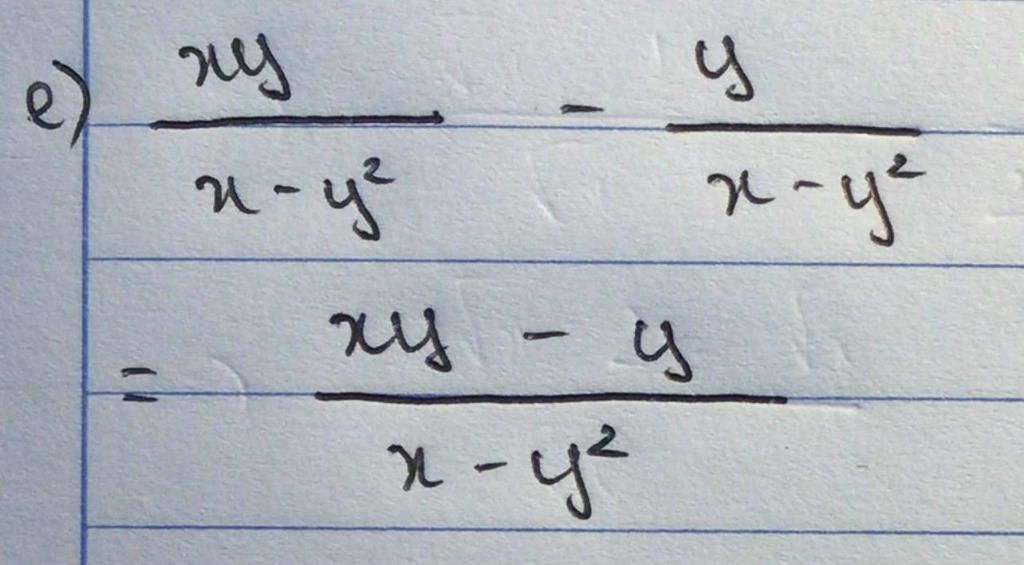 e) xy/(x - y²) - y/(x - y²)
= (xy - y)/(x - y²)